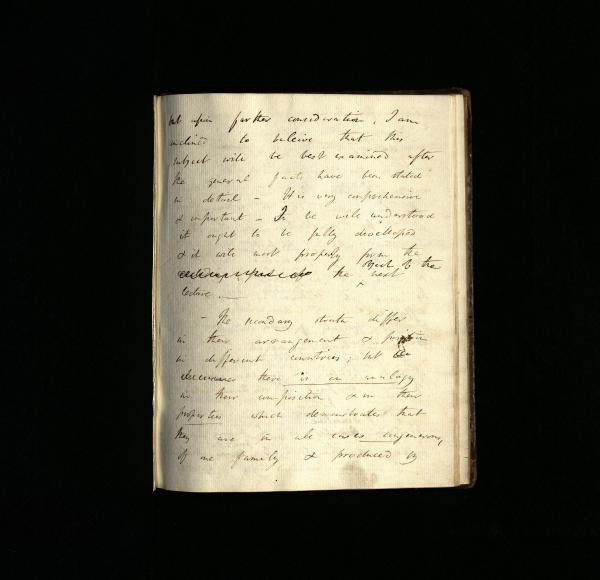 but upon farther consideration, I am
inclined to beleive that this
subject will be best examined after
the general facts have been stated
in detail - It is very comprehensive
& important - To be well understood
it ought to be fully developed
& it will most properly form the
object of the
the next
lecture. —
- The secondary strata differ
in their arrangement & position
in different countries; but
there is an analogy
in their composition & in their
properties which demonstrates that
they are in all cases congenerous,
of one family & produced by